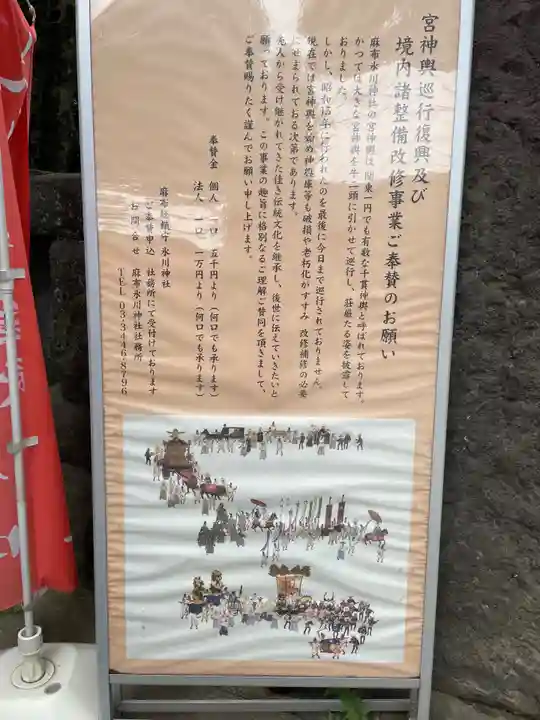 宮神輿巡行復興及び
境内諸整備改修事業ご奉賛のお願い
麻布氷川神社の宮神輿は関東一円でも有数な千貫神輿と呼ばれております。
かつては大きな宮神輿を牛二頭に引かせて巡行し、荘厳たる姿を披露して
おりました。
しかし、昭和15年に行われたのを最後に今日まで巡行されておりません。
現在では宮神輿を始め神役庫等も破損や老朽化がすすみ 改修補修の必要
にせまられておる次第であります。
先人から受け継がれてきた佳き伝統文化を継承し、後世に伝えていきたいと
願っております。この事業の趣旨に格別なるご理解ご賛同を頂きまして、
ご奉賛賜りたく謹んでお願い申し上げます。
奉賛金 個人 一口 五千円より(何口でも承ります)
法人 一口 一万円より(何口でも承ります)
麻布総鎮守 氷川神社
ご奉賛申込 社務所にて受付けております
お問合せ 麻布氷川神社社務所
TEL 03-3446-8796